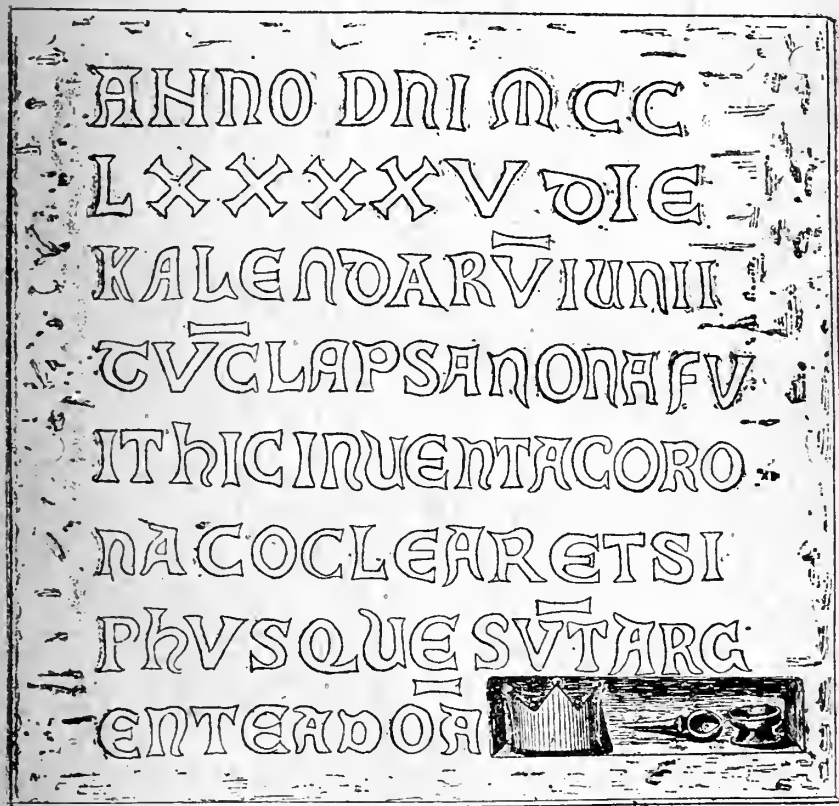 ANNO DNI MCC
LXXXXV DIE
KALENDARV̄ IUNII
TV̄C LAPSA NONA FV
IT hIC INUENTA CORO
NA COCLEAR ET SI
PhVSQUE SV̄T ARG
ENTEA DOĀ